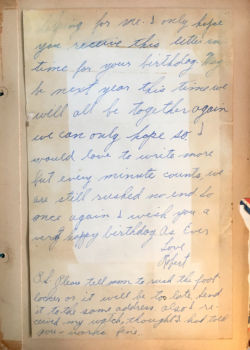 for me. I only hope
you receive this letter in
time for your birthday. May
be next year this time we
will all be together again
we can only hope so. I
would love to write more
but every minute counts, we
are still rushed no end so
once again I wish you a
very happy birthday As Ever
Love
Robert
P.S. Please tell mom to rush the foot
locker or it will be too late, send
it to the same address. also I re-
ceived my watch, thought I had told
you - works fine.